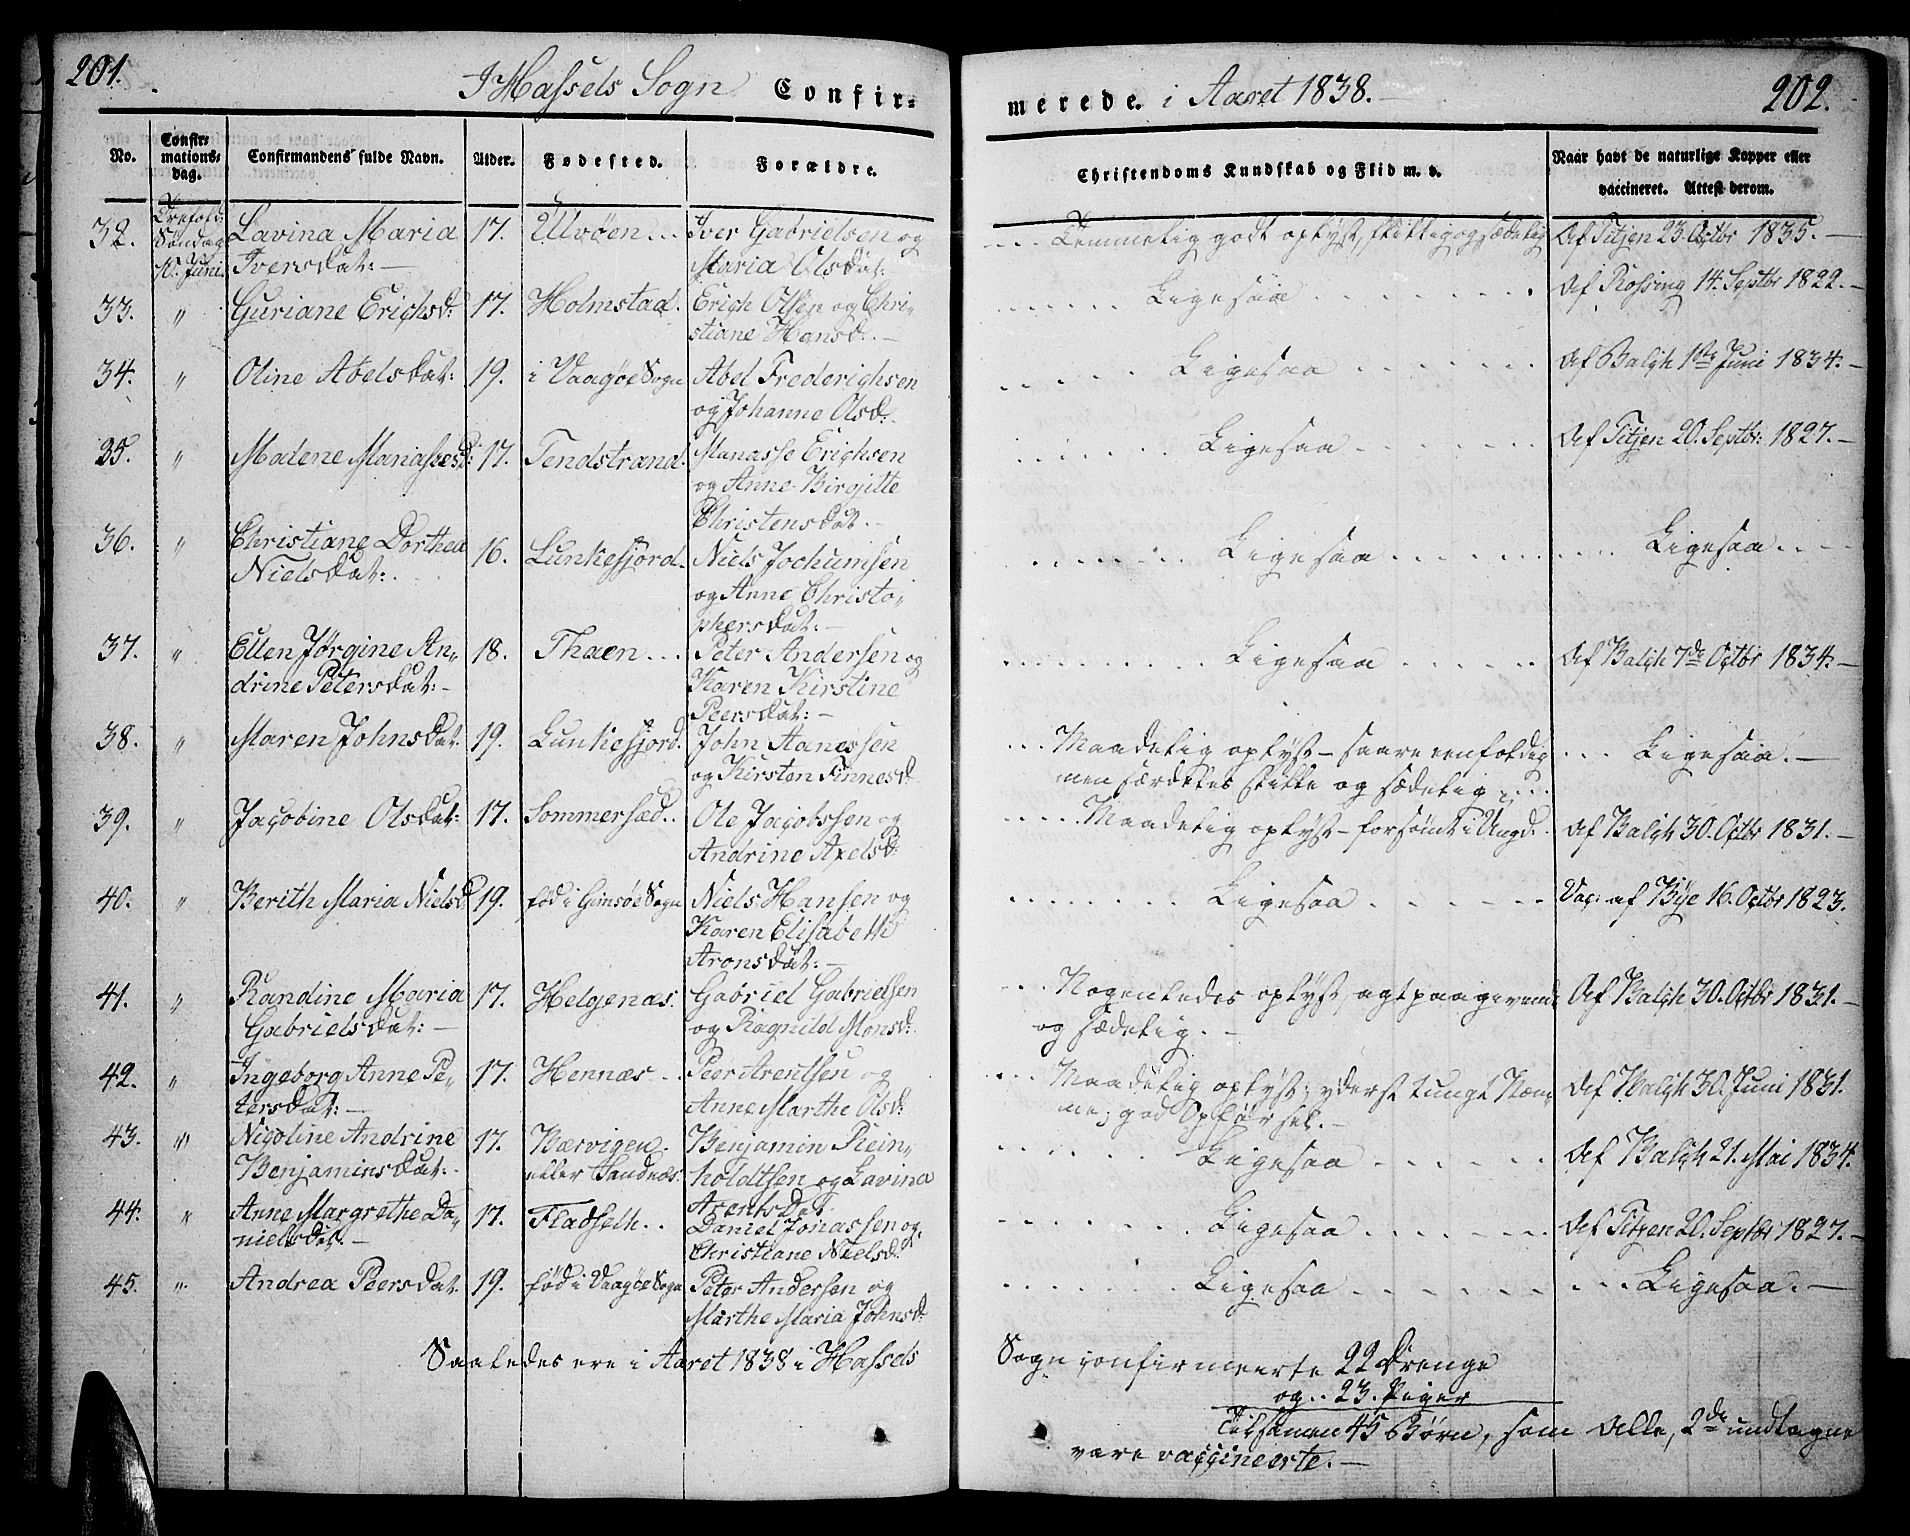 201.
I Hassels Sogn Confir-
No.
Confir-
mations-
dag.
Confirmandens fulde Navn.
Alder.
Fødested.
Forældre.
32. Trefold: Lavina Maria 17. Ulvøen... Iver Gabrielsen og
Søndag Iversdat:— Maria Olsdat:
10. Juni
33. " Guriane Erichsd: 17. Holmstad. Erich Olsen og Chri-
stiane Hansd:.—
34. " Oline Abelsdat: 19. i Vaagøe Sogn Abel Frederichsen
og Johanne Olsd:
35. " Madene Manassesd: 17. Tendstrand. Manasse Erichsen
og Anne Birgitte
Christensdat.—
36. " Christiane Dorthea 16. Lunkefjord. Niels Jochumsen
Nielsdat:. og Anne Christo-
phersdat:—
37. " Ellen Jørgine An- 18. Thaen... Peter Andersen og
drine Petersdat:— Karen Kirstine
Peersdat:—
38. " Maren Johnsdat. 19. Lunkefjord. John Aanessen
og Kirsten Finnesd.
39. " Jacobine Olsdat: 17. Sommersæd.. Ole Jacobssen og
Andrine Axelsd:
40. " Berith Maria Nielsd 19. fød i Gimsøe Sogn Niels Hansen og
Karen Elisabeth
Aronsdat:—
41. " Randine Maria 17. Helgenæs. Gabriel Gabrielsen
Gabrielsdat:— og Ragnild Monsd:
42. " Ingeborg Anne Pe- 17. Hennæs.. Peer Arentsen og
tersdat:— Anne Marthe Olsd:
43. " Nicoline Andrine 17. Kærvigen Benjamin Rein-
Benjaminsdat:. eller Sandnes. holdtsen og Lavina
Arentsdat
44. " Anne Margrethe Da- 17. Fladseth.. Daniel Jonassen og
nielsdat.— Christiane Nielsd:
45. " Andrea Peersdat. 19. fød i Vaagøe Sogn Peter Andersen og
Marthe Maria Johnsd:
Saaledes ere i Aaret 1838 i Hassels
merede. i Aaret 1838.— 202.
Christendoms Kundskab og Flid m. v.
Naar havt de naturlige Kopper eller
vaccineret. Attest derom.
... Temmelig godt oplyst, flittig og sædelig Af Titjen 23. Octbr 1835.—
Ligesaa Af Rossing 14. Septbr 1822.—
Ligesaa Af Balch 1ste Juni 1834.—
Ligesaa Af Titjen 20. Septbr: 1827.—
Ligesaa Ligesaa
Ligesaa Af Balch 7de Octbr 1834.—
... Maadelig oplyst — saare eenfoldig ... Ligesaa.—
men særdeles stille og sædelig
Maadelig oplyst — forsømt i Ungd. Af Balch 30. Octbr 1831.—
Ligesaa Vac: af Bye 16. Octbr 1823.
... Nogenledes oplyst, agtpaagivende Af Balch 30. Octbr 1831.—
og sædelig.—
... Maadelig oplyst; yderst tungt Nem- Af Balch 30. Juni 1831.
me; god Opførsel.—
Ligesaa Af Balch 21. Mai 1834.
Ligesaa Af Titjen 20. Septbr 1827.—
Ligesaa Ligesaa.—
Sogn confirmeerte 22 Drenge
og.. 23. Piger
Tilsamen 45 Børn, som Alle, 2de undtagne
vare vaccineerte.—